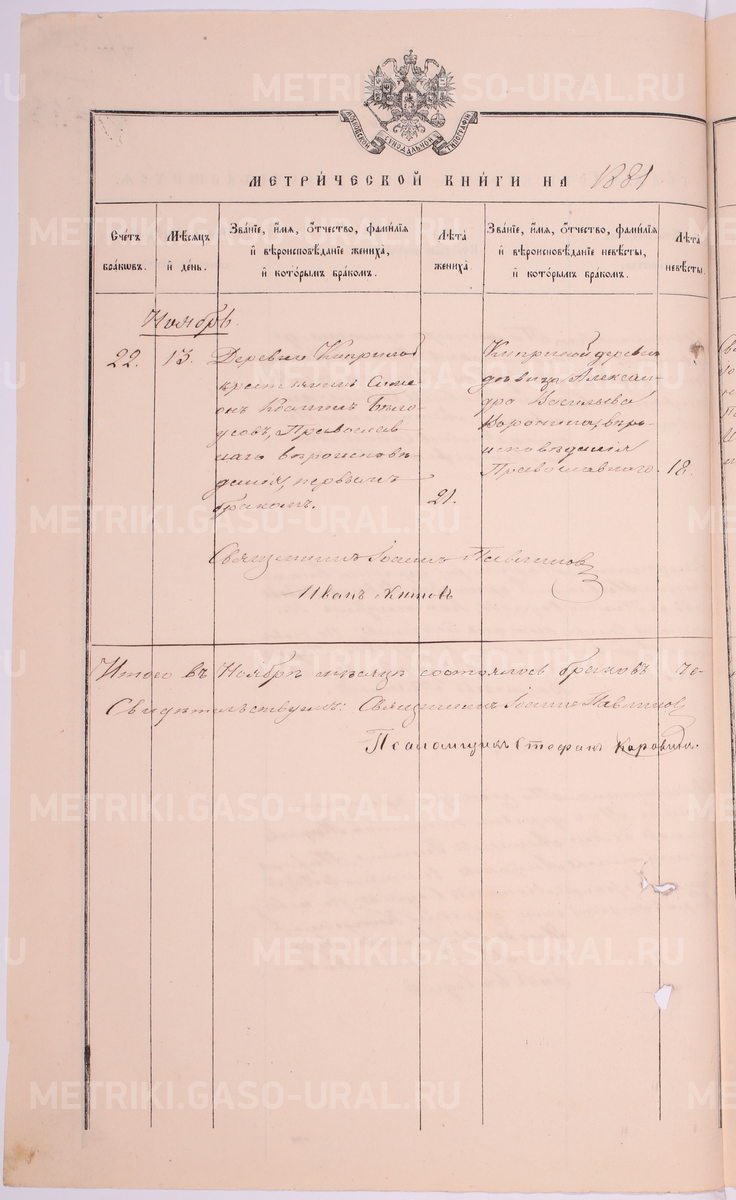 МОСКОВСКОЙ СѴНОДАЛЬНОЙ ТИПОГРАФІИ
МЕТРИ́ЧЕСКОЙ КНИ́ГИ НА 1881
Сче́тъ бра́ковъ.
Мѣ́сяцъ и҆ де́нь.
Зва́нїе, и҆́мѧ, ѻ҆́тчество, фами́лїѧ
и҆ вѣроисповѣ́данїе жениха̀,
и҆ кото́рымъ бра́комъ.
Лѣ́та жениха̀.
Зва́нїе, и҆́мѧ, ѻ҆́тчество, фами́лїѧ
и҆ вѣроисповѣ́данїе невѣ́сты,
и҆ кото́рымъ бра́комъ.
Лѣ́та невѣ́сты.
Ноябрь.
22. 13.
Деревни
крестьянинъ Симе-
онъ Бѣло-
усовъ, Православ-
наго вѣроисповѣ-
данія, первымъ
бракомъ.
21.
деревни
дѣвица Алексан-
дра Васильева
вѣро-
исповѣданія
Православнаго.
18.
Священникъ Іоаннъ
Иванъ
Итого въ Ноябрѣ мѣсяцѣ состоялось браковъ
Свидѣтельствуемъ: Священникъ Іоаннъ
Псаломщикъ Стефанъ
METRIKI.GASO-URAL.RU
METRIKI.GASO-URAL.RU
METRIKI.GASO-URAL.RU
METRIKI.GASO-URAL.RU
METRIKI.GASO-URAL.RU
METRIKI.GASO-URAL.RU
METRIKI.GASO-URAL.RU
METRIKI.GASO-URAL.RU